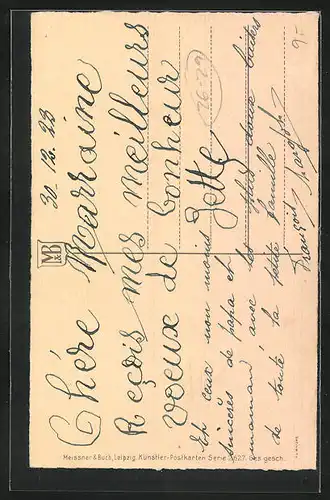 30. 12. 23
Chère Marraine
Reçois mes meilleurs
voeux de bonheur
Jette
et ceux non moins
sincères de papa et
maman avec les plus doux baisers
de toute la petite famille
François
M&B
Meissner & Buch, Leipzig. Künstler-Postkarten Serie 2627. Ges. gesch.
9.-